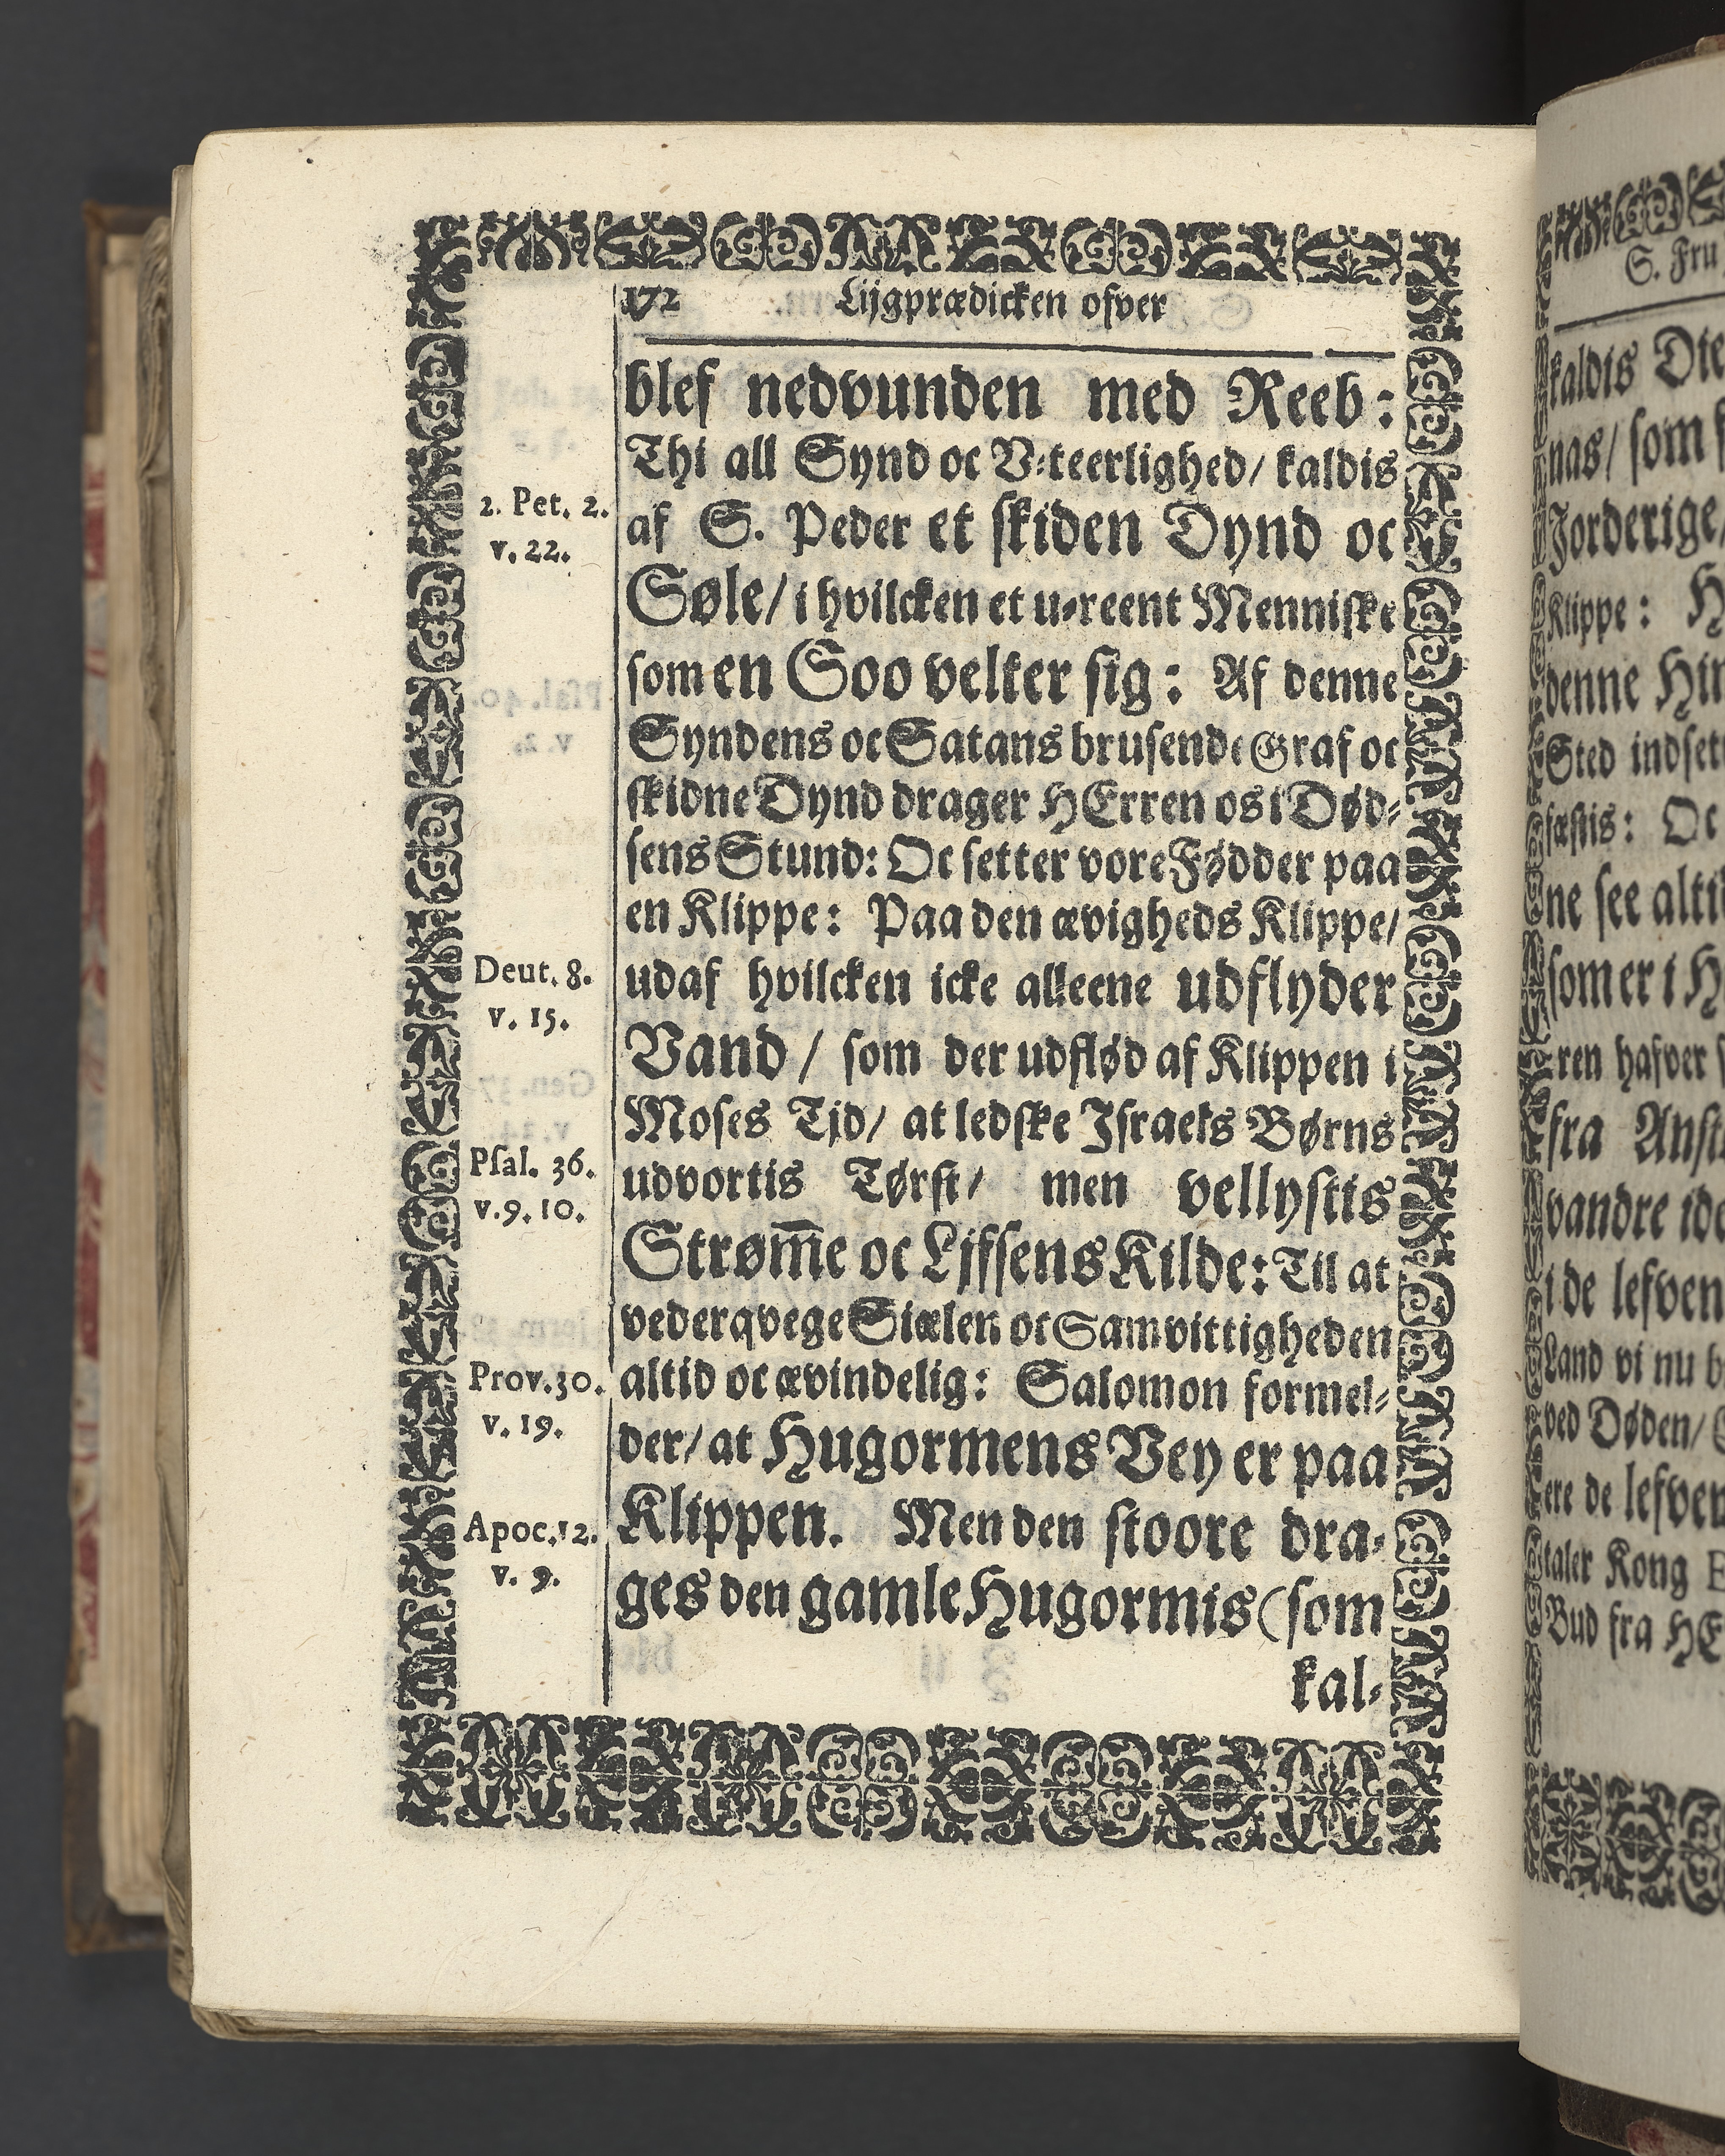 172 Lijgprædicken ofver
blef nedvunden med Reeb:
Thi all Synd oc V-teerlighed/ kaldis
2. Pet. 2.
v. 22.
af S. Peder et skiden Dynd oc
Søle/ i hvilcken et u-reent Menniske
som en Soo velter sig: Af denne
Syndens oc Satans brusende Graf oc
skidne Dynd drager HErren os i Død-
sens Stund: Oc setter vore Fødder paa
en Klippe: Paa den ævigheds Klippe/
Deut. 8.
v. 15.
udaf hvilcken icke alleene udflyder
Vand/ som der udflød af Klippen i
Moses Tjd/ at ledske Israels Børns
Psal. 36.
v. 9. 10.
udvortis Tørst/ men vellystis
Strøm̅e oc Ljfsens Kilde: Til at
vederqvege Siælen oc Samvittigheden
Prov. 30.
v. 19.
altid oc ævindelig: Salomon formel-
der/ at Hugormens Vey er paa
Apoc. 12.
v. 9.
Klippen. Men den stoore dra-
ges den gamle Hugormis (som
kal-
S. Fru
kaldis
nas/ som
Jorderige/
Klippe:
denne
Sted
fæstis: Oc
ne see
som er i
ren hafver
fra
vandre
i de
Land vi nu
ved Døden/
ere de
taler Kong
Bud fra